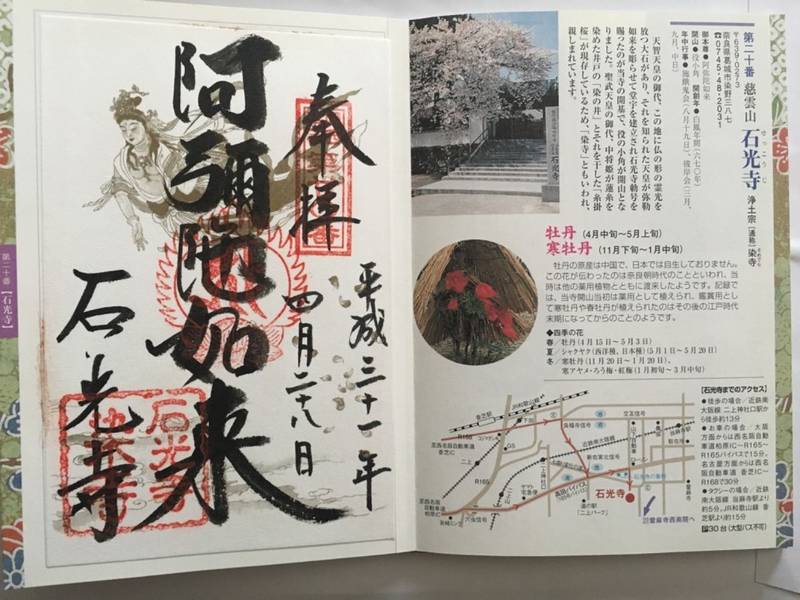 奉拝
阿彌陀如来
平成三十一年
四月二十八日
石光寺
第二十番【石光寺】
第二十番 慈雲山 石光寺 浄土宗 [通称]染寺
せっこうじ
〒639-0273
奈良県葛城市染野三八七
☎0745-48-2031
御本尊●阿弥陀如来
開山●役小角、開創年●白鳳年間(六七〇年)
年中行事●施餓鬼会(八月十九日)、彼岸会(三月、
九月、中日)
天智天皇の御代、この地に仏の形の霊光を
放つ大石があり、それを知られた天皇が弥勒
如来を彫らせて堂宇を建立され石光寺勅号を
賜ったのが当寺の開基で、役の小角が開山とな
りました。聖武天皇の御代、中将姫が蓮糸を
染めた井戸の「染の井」とそれを干した「糸掛
桜」が現存しているため、「染寺」ともいわれ、
親しまれています。
牡丹 (4月中旬〜5月上旬)
寒牡丹 (11月下旬〜1月中旬)
牡丹の原産は中国で、日本では自生しておりません。
この花が伝わったのは奈良朝時代のことといわれ、当
時は他の薬用植物とともに渡来したようです。記録で
は、当寺開山当初は薬用として植えられ、鑑賞用とし
て寒牡丹や春牡丹が植えられたのはその後の江戸時代
末期になってからのことのようです。
◆四季の花
春/牡丹(4月15日〜5月3日)
夏/シャクヤク(西洋種、日本種)(5月1日〜5月20日)
冬/寒牡丹(11月20日〜1月20日)、
寒アヤメ・ろう梅・紅梅(1月初旬〜3月中旬)
【石光寺までのアクセス】
●徒歩の場合/近鉄南
大阪線 二上神社口駅か
ら徒歩約13分
●お車の場合/大阪
方面からは西名阪自動
車道柏原IC―R165―
R165バイパスで15分。
名古屋方面からは西
名阪自動車道 香芝IC
―R168で30分
●タクシーの場合/近鉄
南大阪線 当麻寺駅より
約5分、JR和歌山線 香
芝駅より約15分
P30台(大型バス不可)
香芝駅
JR和歌山線
R168
R165
近鉄南大阪線
石光寺
㉑當麻寺西南院へ